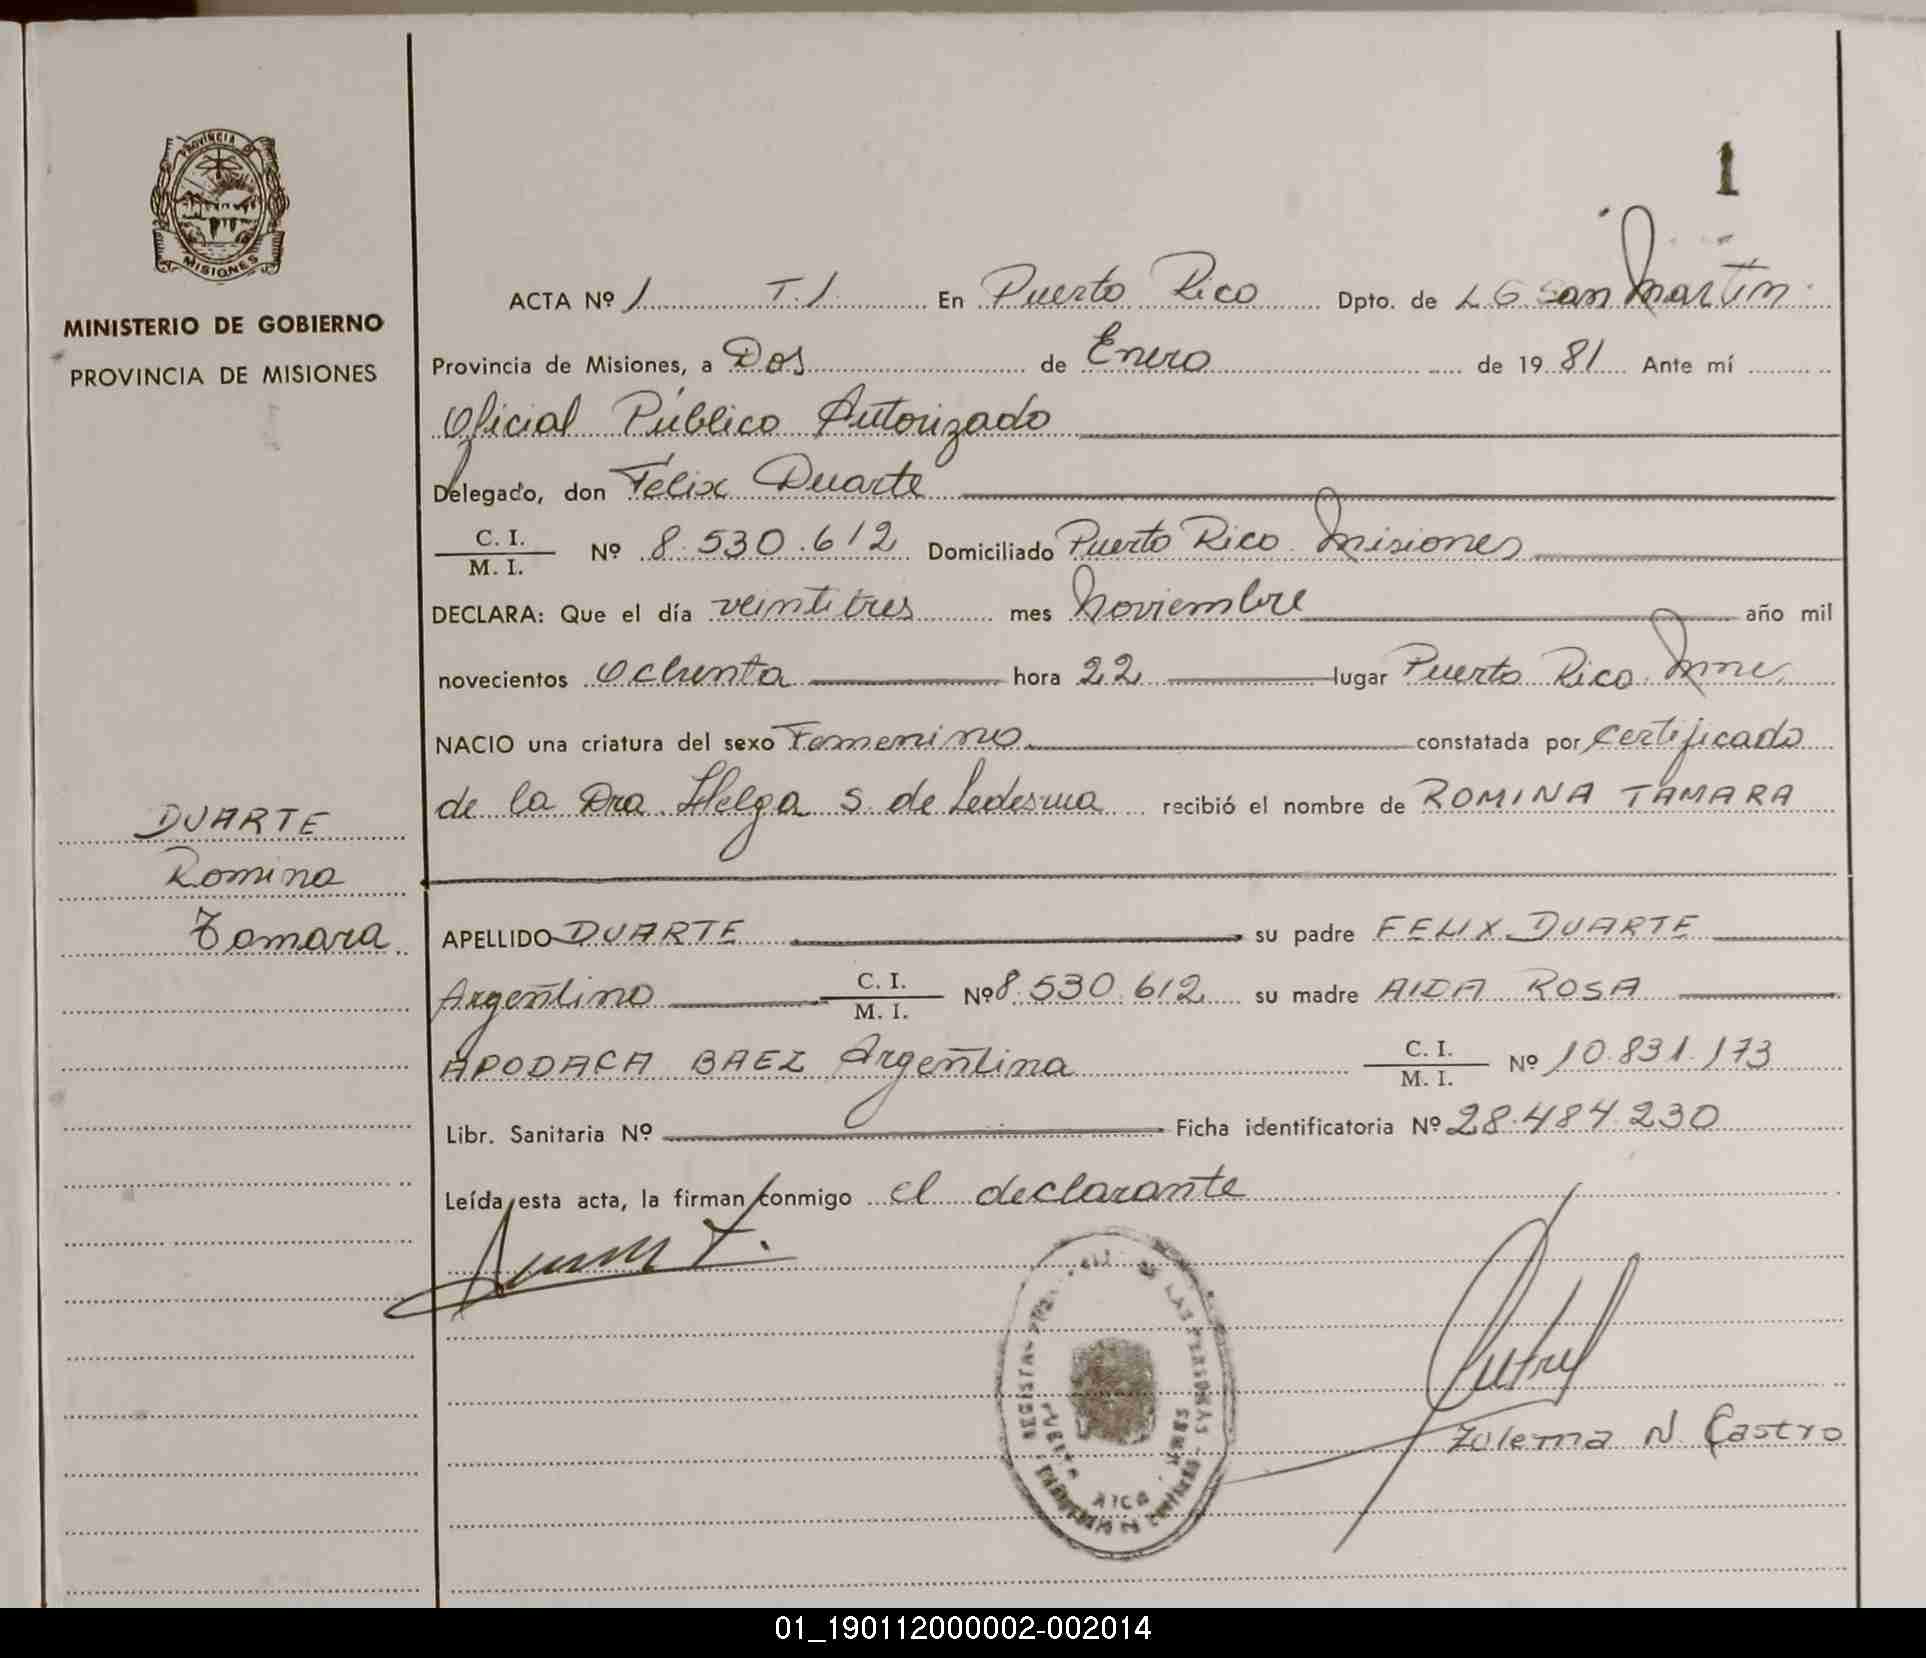 1
PROVINCIA DE
MISIONES
MINISTERIO DE GOBIERNO
PROVINCIA DE MISIONES
DUARTE
Romina
Tamara
ACTA Nº 1 T.1. En Puerto Rico Dpto. de L G San Martín
Provincia de Misiones, a Dos de Enero de 1981 Ante mí
Oficial Público Autorizado
Delegado, don Félix Duarte
C. I.
M. I. Nº 8.530.612 Domiciliado Puerto Rico Misiones
DECLARA: Que el día veintitres mes Noviembre año mil
novecientos Ochenta hora 22 lugar Puerto Rico Mnes.
NACIO una criatura del sexo Femenino constatada por certificado
de la Dra. Helga S. de Ledesma recibió el nombre de ROMINA TAMARA
APELLIDO DUARTE su padre FELIX DUARTE
Argentino C. I.
M. I. Nº 8.530.612 su madre AIDA ROSA
APODACA BAEZ Argentina C. I.
M. I. Nº 10.831.173
Libr. Sanitaria Nº Ficha identificatoria Nº 28.484.230
Leída esta acta, la firman conmigo el declarante
DE LAS PERSONAS
RICO
Zulema N. Castro
01_190112000002-002014